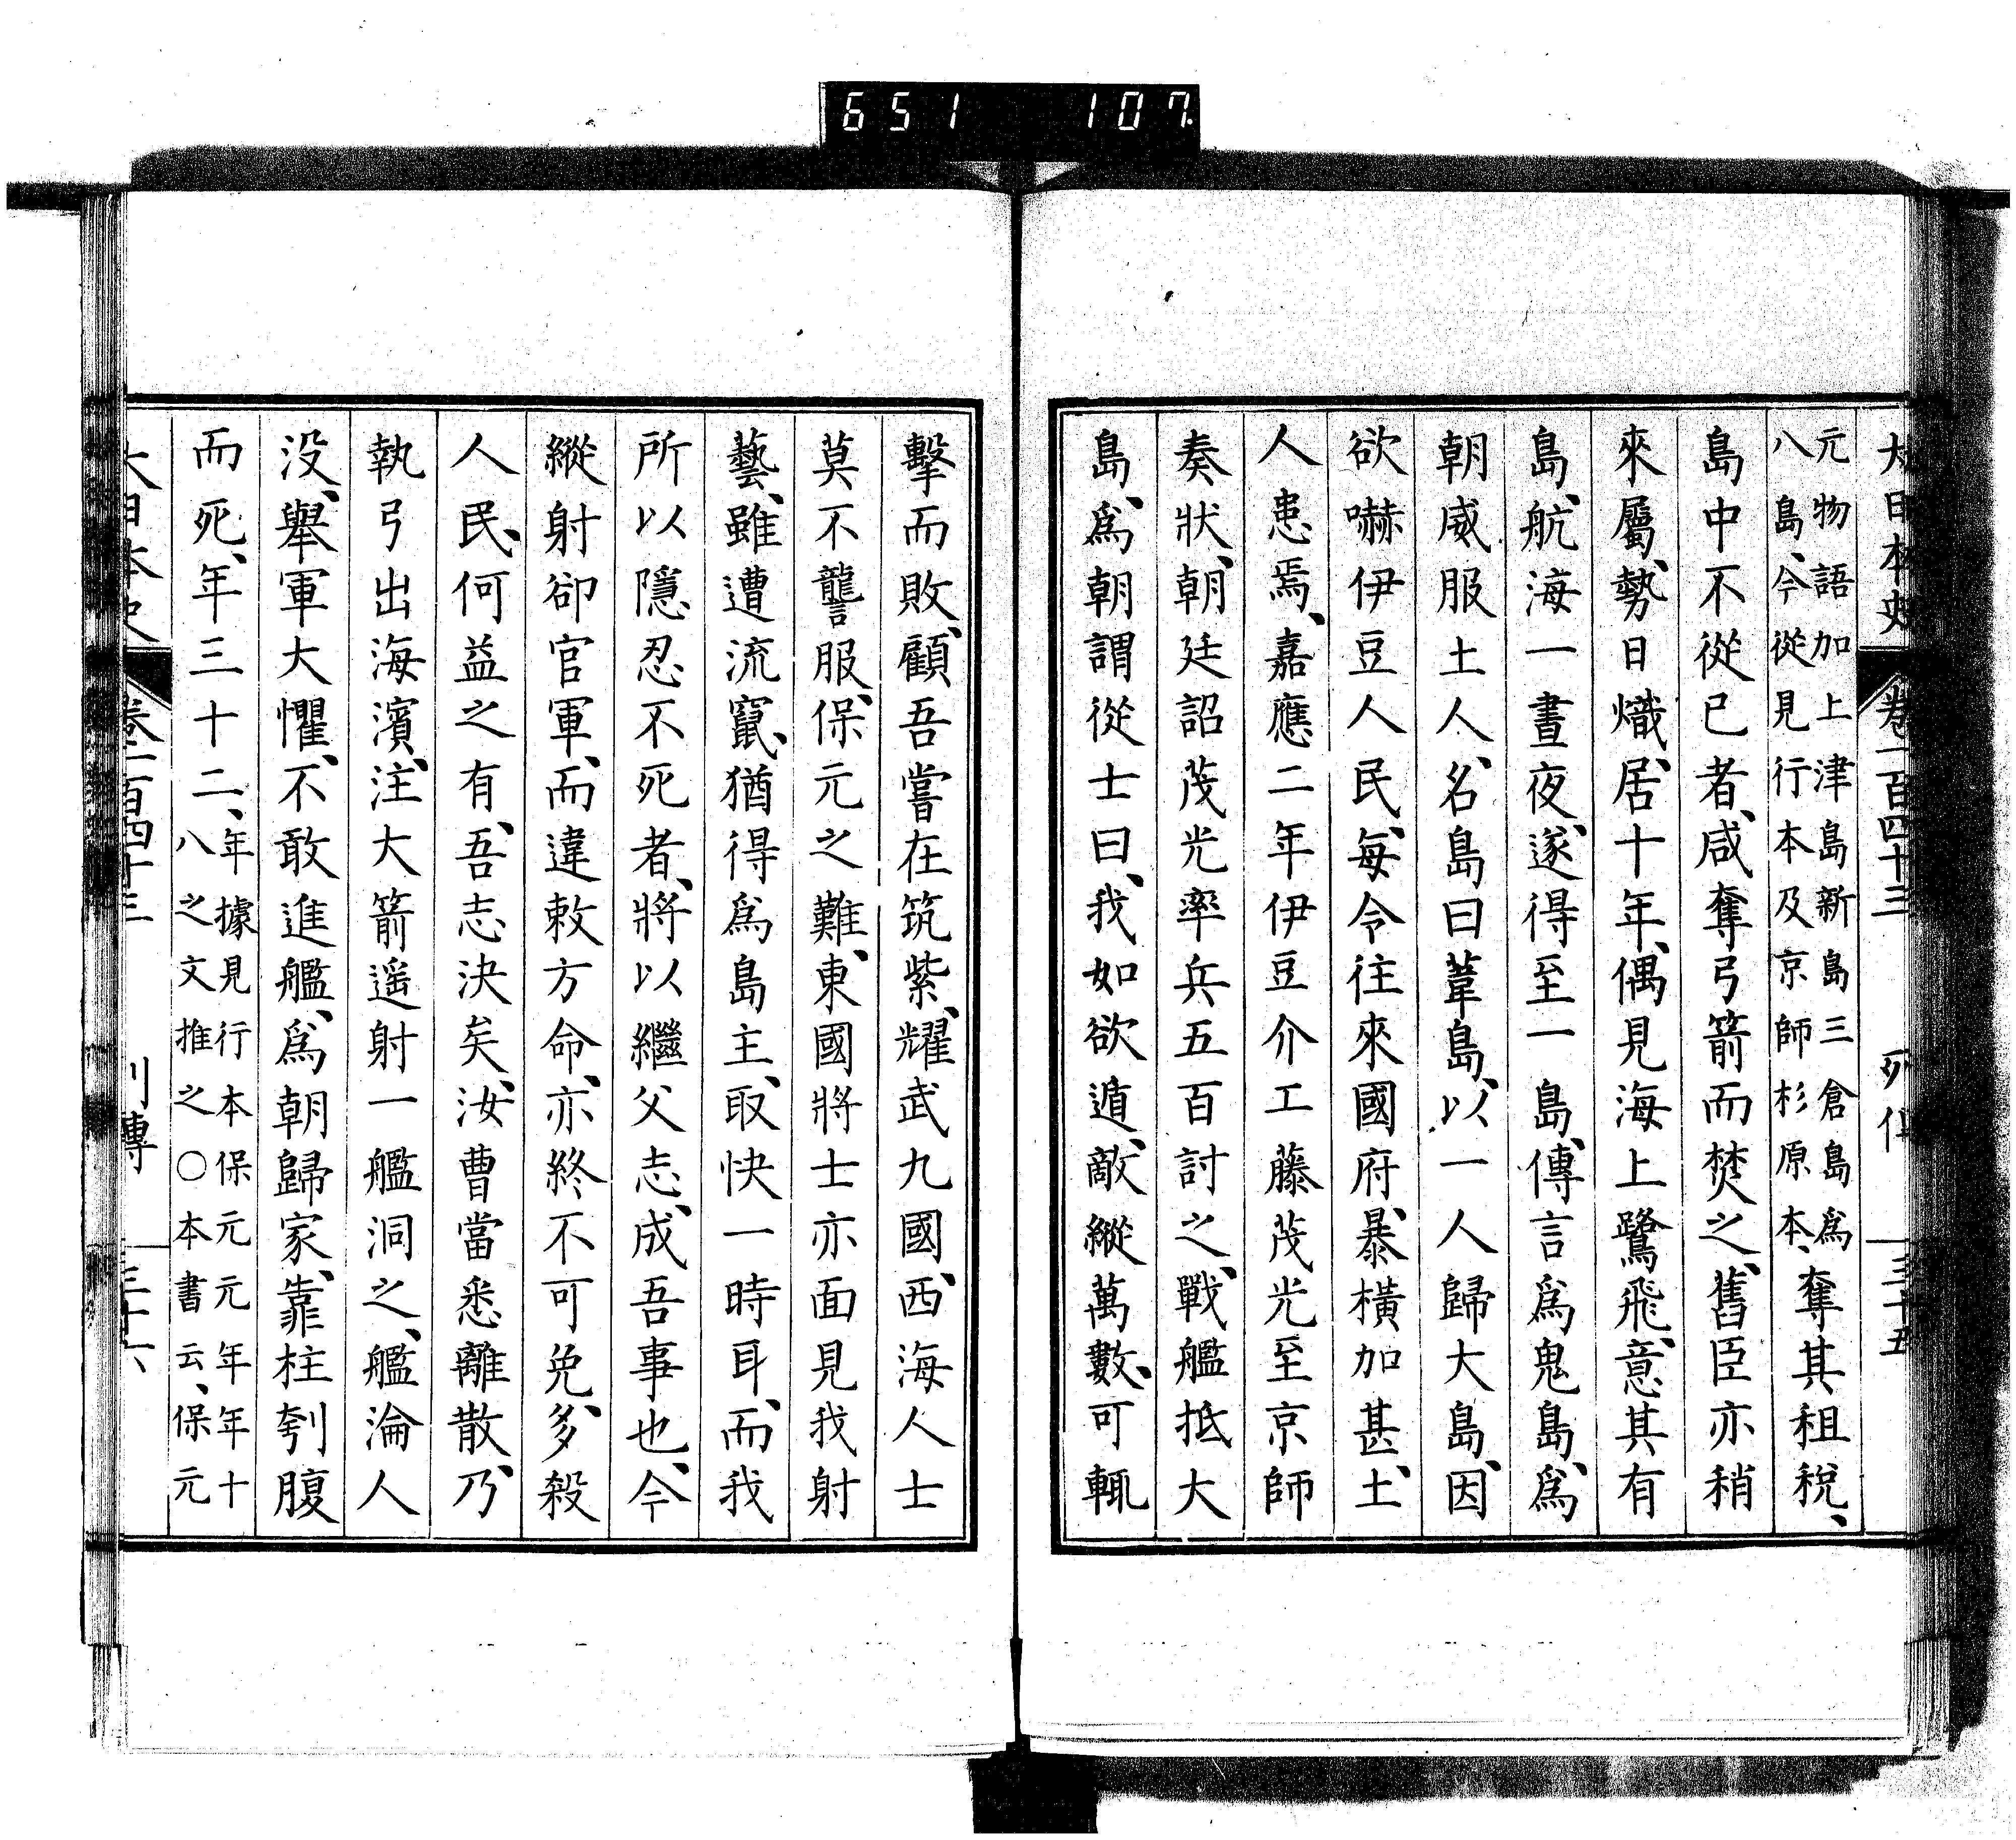 651 107
大日本史 卷一百四十三 列傳 三十五
元物語加上津島新島三倉島爲
八島、今從見行本及京師杉原本、奪其租税、
島中不從已者、咸奪弓箭而焚之、舊臣亦稍
來屬、勢日熾、居十年、偶見海上鷺飛、意其有
島、航海一晝夜、遂得至一島、傳言爲鬼島、爲
朝威服土人、名島曰葦島、以一人歸大島、因
欲嚇伊豆人民、每令往來國府、暴橫加甚、土
人患焉、嘉應二年伊豆介工藤茂光至京師
奏狀、朝廷詔茂光率兵五百討之、戰艦抵大
島、爲朝謂從士曰、我如欲遁、敵縱萬數、可輒
擊而敗、顧吾嘗在筑紫、耀武九國、西海人士
莫不讋服、保元之難、東國將士亦面見我射
藝、雖遭流竄、猶得爲島主、取快一時耳、而我
所以隱忍不死者、將以繼父志、成吾事也、今
縱射卻官軍、而違敕方命、亦終不可免、多殺
人民、何益之有、吾志決矣、汝曹當悉離散、乃
執弓出海濱、注大箭遥射一艦洞之、艦淪人
没、舉軍大懼、不敢進艦、爲朝歸家、靠柱刳腹
而死、年三十二、年據見行本保元元年年十
八之文推之○本書云、保元
大日本史 卷一百四十三 列傳 三十六